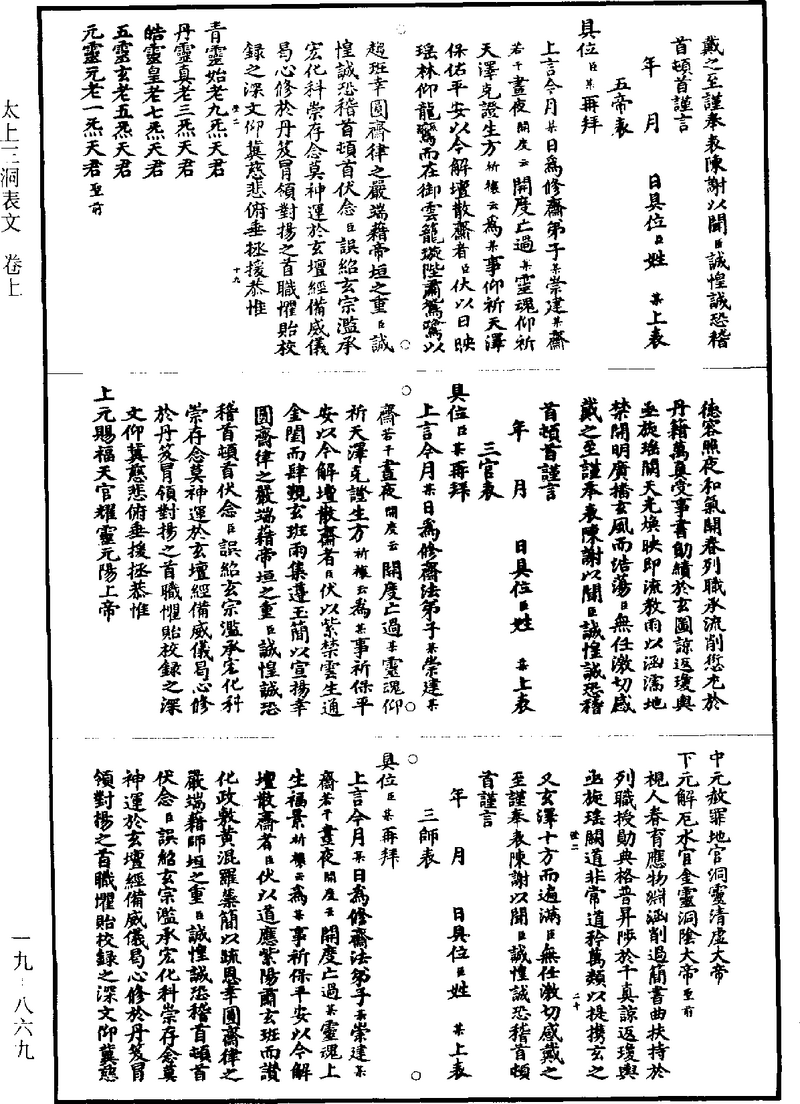 太上三洞表文 卷上
一九 · 八六九
戴之至謹奉表陳謝以聞臣誠惶誠恐稽
首頓首謹言
年 月 日具位臣姓 某上表
五帝表
具位臣某再拜
上言今月某日為修齋弟子某崇建某齋
若干晝夜開度云開度亡過某靈魂仰祈
天澤克證生方祈禳云為某事仰祈天澤
保佑平安以今解壇散齋者臣伏以日映
瑤林仰龍駕而在御雲籠璇陛肅鴛鷺以
趨班幸圓齋律之嚴端藉帝垣之重臣誠
惶誠恐稽首頓首伏念臣誤紹玄宗濫承
宏化科崇存念莫神運於玄壇經備威儀
曷心修於丹笈冒領對揚之首職懼貽校
錄之深文仰冀慈悲俯垂拯援恭惟
十九
青靈始老九炁天君
丹靈真老三炁天君
皓靈皇老七炁天君
五靈玄老五炁天君
元靈元老一炁天君至前
德容照夜和氣開春列職承流削愆尤於
丹籍萬真受事書勛績於玄圖諒返瓊輿
亟旋瑤闕天光煥映即流教雨以涵濡地
禁開明廣播玄風而浩蕩臣無任激切感
戴之至謹奉表陳謝以聞臣誠惶誠恐稽
首頓首謹言
年 月 日具位臣姓 某上表
三官表
具位臣某再拜
上言今月某日為修齋法弟子某崇建某
齋若干晝夜開度云開度亡過某靈魂仰
祈天澤克證生方祈禳云為某事祈保平
安以今解壇散齋者臣伏以紫禁雲生通
金闕而肆覲玄班雨集遵玉簡以宣揚幸
圓齋律之嚴端藉帝垣之重臣誠惶誠恐
稽首頓首伏念臣誤紹玄宗濫承宏化科
崇存念莫神運於玄壇經備威儀曷心修
於丹笈冒領對揚之首職懼貽校錄之深
文仰冀慈悲俯垂援拯恭惟
上元賜福天官耀靈元陽上帝
中元赦罪地官洞靈清虛大帝
下元解厄水官金靈洞陰大帝至前
視人春育應物淵涵削過簡書曲扶持於
列職授勛典格普昇陟於千真諒返瓊輿
亟旋瑤闕道非常道矜萬類以提携玄之
二十
又玄澤十方而遍滿臣無任激切感戴之
至謹奉表陳謝以聞臣誠惶誠恐稽首頓
首謹言
年 月 日具位臣姓 某上表
三師表
具位臣某再拜
上言今月某日為修齋法弟子某崇建某
齋若干晝夜開度云開度亡過某靈魂上
生福景祈禳云為某事祈保平安以今解
壇散齋者臣伏以道應紫陽肅玄班而讚
化政敷黃混羅蘂簡以疏恩幸圓齋律之
嚴端藉師垣之重臣誠惶誠恐稽首頓首
伏念臣誤紹玄宗濫承宏化科崇存念莫
神運於玄壇經備威儀曷心修於丹笈冒
領對揚之首職懼貽校錄之深文仰冀慈